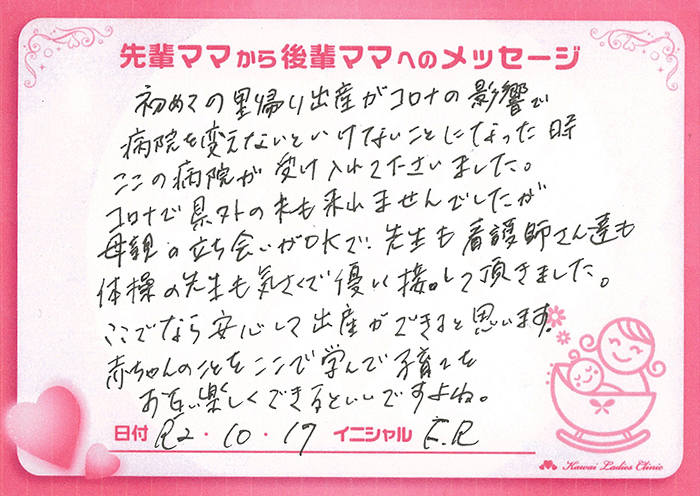 先輩ママから後輩ママへのメッセージ
初めての里帰り出産がコロナの影響で
病院を変えないといけないことになった時
ここの病院が受け入れて下さいました。
コロナで県外の夫も来れませんでしたが
母親の立ち会いがOKで、先生も看護師さん達も
体操の先生も気さくで優しく接して頂きました。
ここでなら安心して出産ができると思います。
赤ちゃんのことをここで学んで子育てを
お互い楽しくできるといいですよね。
日付 R2・10・17 イニシャル E.R
Kawai Ladies Clinic